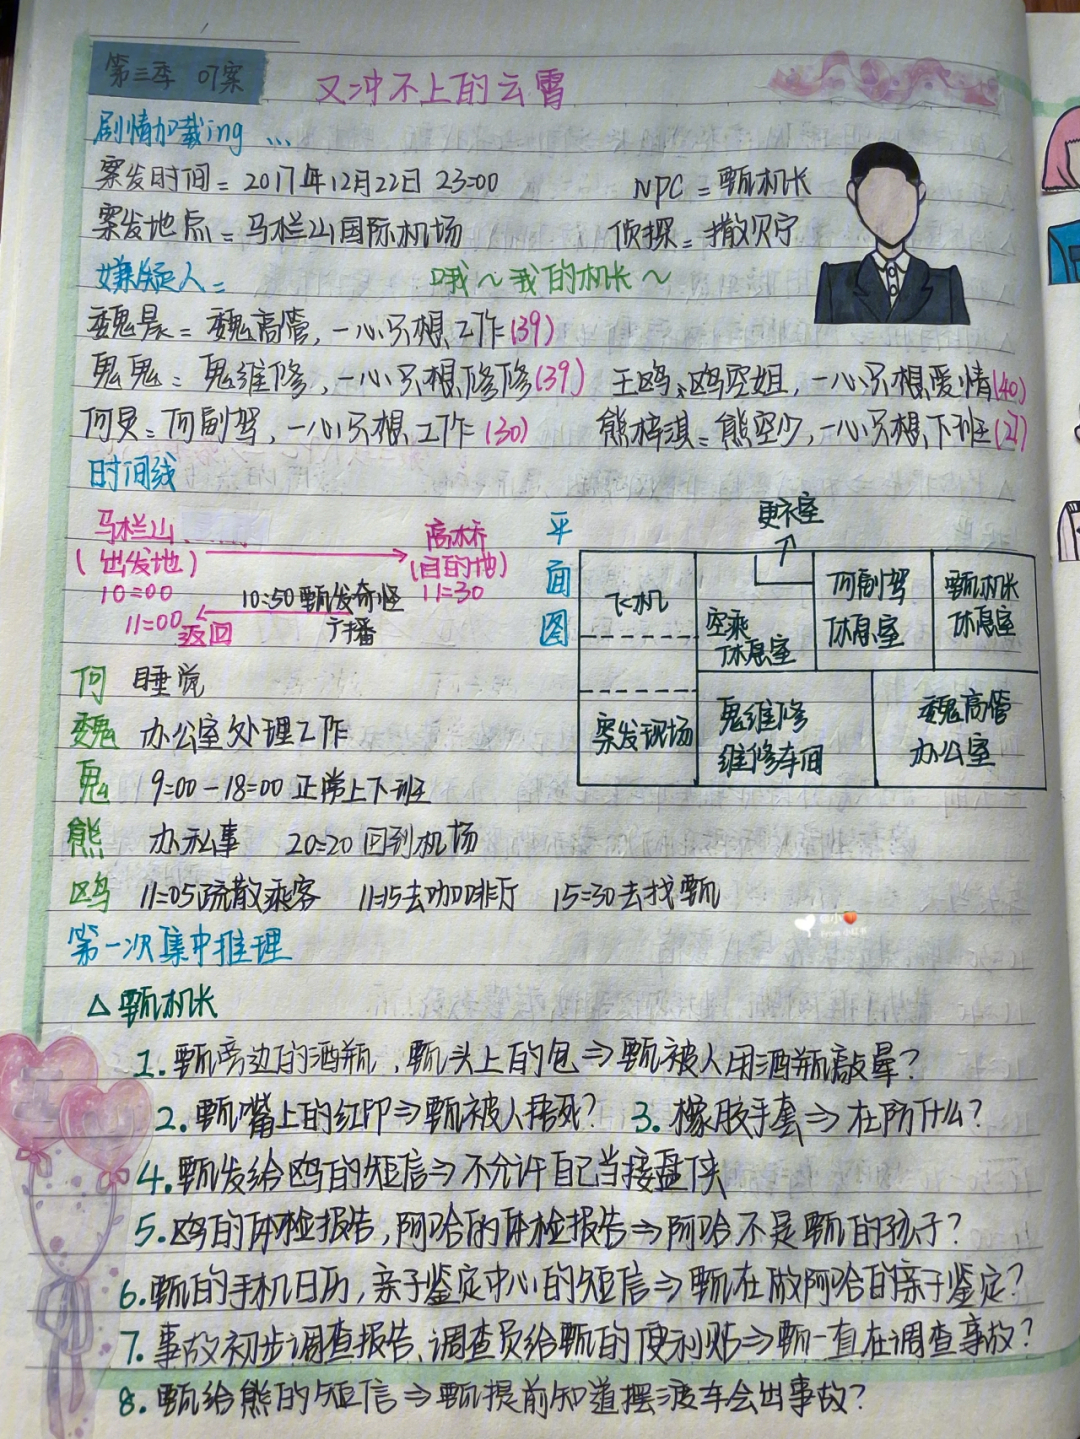 第三季 07案
又冲不上的云霄
剧情加载ing ...
案发时间=2017年12月22日 23:00 NPC=甄机长
案发地点=马栏山国际机场 侦探=撒贝宁
嫌疑人= 哦~我的机长~
魏晨=魏高管,一心只想工作(39)
鬼鬼=鬼维修,一心只想修修(39) 王鸥=鸥空姐,一心只想爱情(40)
何炅=何副驾,一心只想工作(30) 熊梓淇=熊空少,一心只想下班(27)
时间线
马栏山 高桥
(出发地) (目的地)
10:00 11:30
10:50甄发奇怪
广播
11:00返回
平面图
更衣室
飞机
空乘
休息室
何副驾
休息室
甄机长
休息室
案发现场
鬼维修
维修车间
魏高管
办公室
何 睡觉
魏 办公室处理工作
鬼 9:00-18:00 正常上下班
熊 办私事 20:20回到机场
鸥 11:05疏散乘客 11:15去咖啡厅 15:30去找甄
第一次集中推理
△甄机长
1.甄旁边的酒瓶,甄头上的包⇒甄被人用酒瓶敲晕?
2.甄嘴上的红印⇒甄被人捂死? 3.橡胶手套⇒在防什么?
4.甄发给鸥的短信⇒不允许自己当接盘侠
5.鸥的体检报告,阿哈的体检报告⇒阿哈不是甄的孩子?
6.甄的手机日历,亲子鉴定中心的短信⇒甄在做阿哈的亲子鉴定?
7.事故初步调查报告、调查员给甄的便利贴⇒甄一直在调查事故?
8.甄给熊的短信⇒甄提前知道摆渡车会出事故?